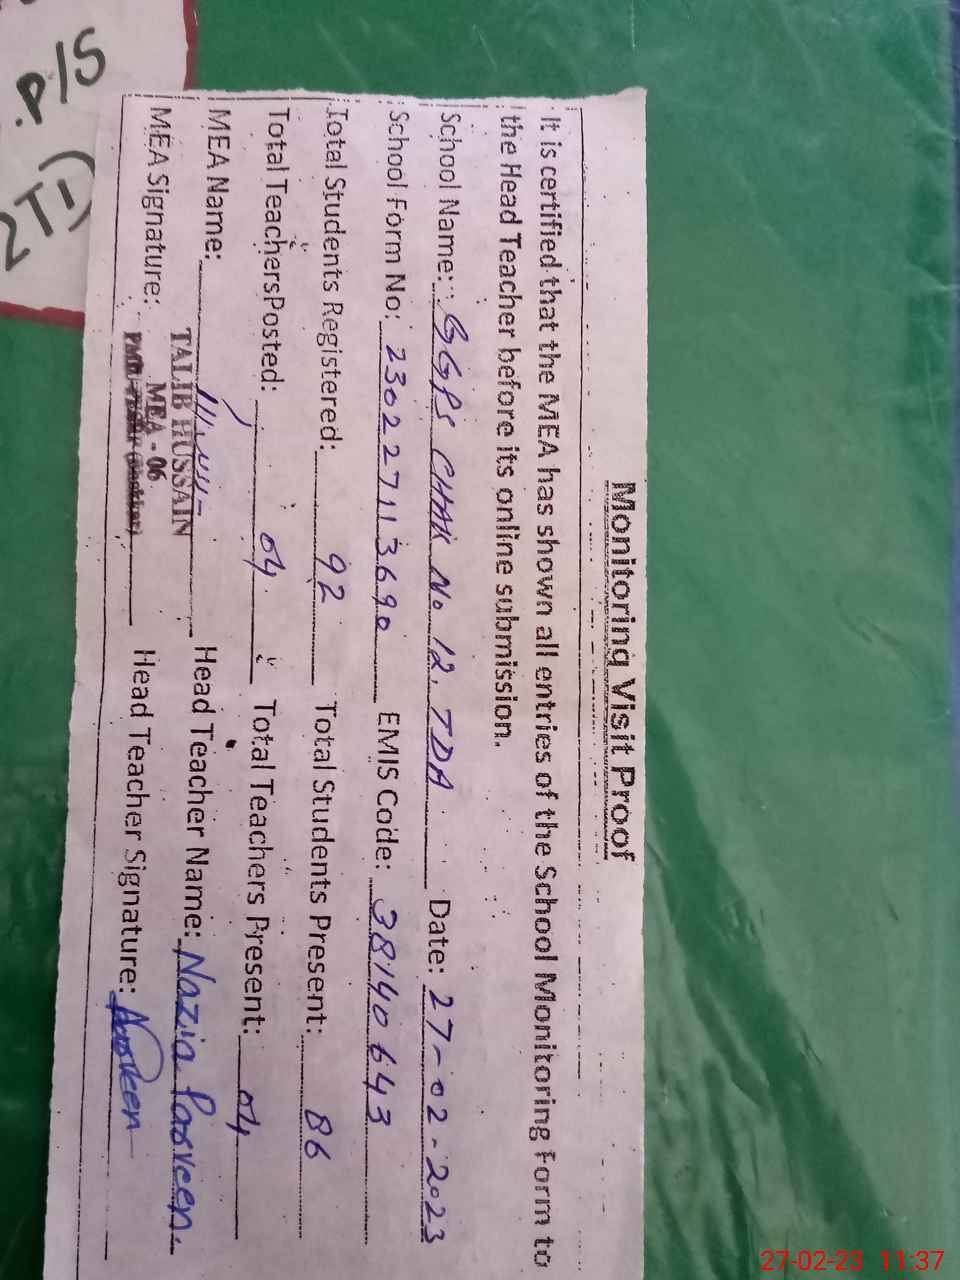 Monitoring Visit Proof
It is certified that the MEA has shown all entries of the School Monitoring Form to
the Head Teacher before its online submission.
School Name: GGPS CHAK No 12. TDA Date: 27-02-2023
School Form No: 230227113690 EMIS Code: 38140643
Total Students Registered: 92 Total Students Present: 86
Total TeachersPosted: 04 Total Teachers Present: 04
MEA Name: Head Teacher Name: Nazia Parveen.
TALIB HUSSAIN
MEA - 06
MEA Signature: Head Teacher Signature:
.P/S
2TD
27-02-23 11:37